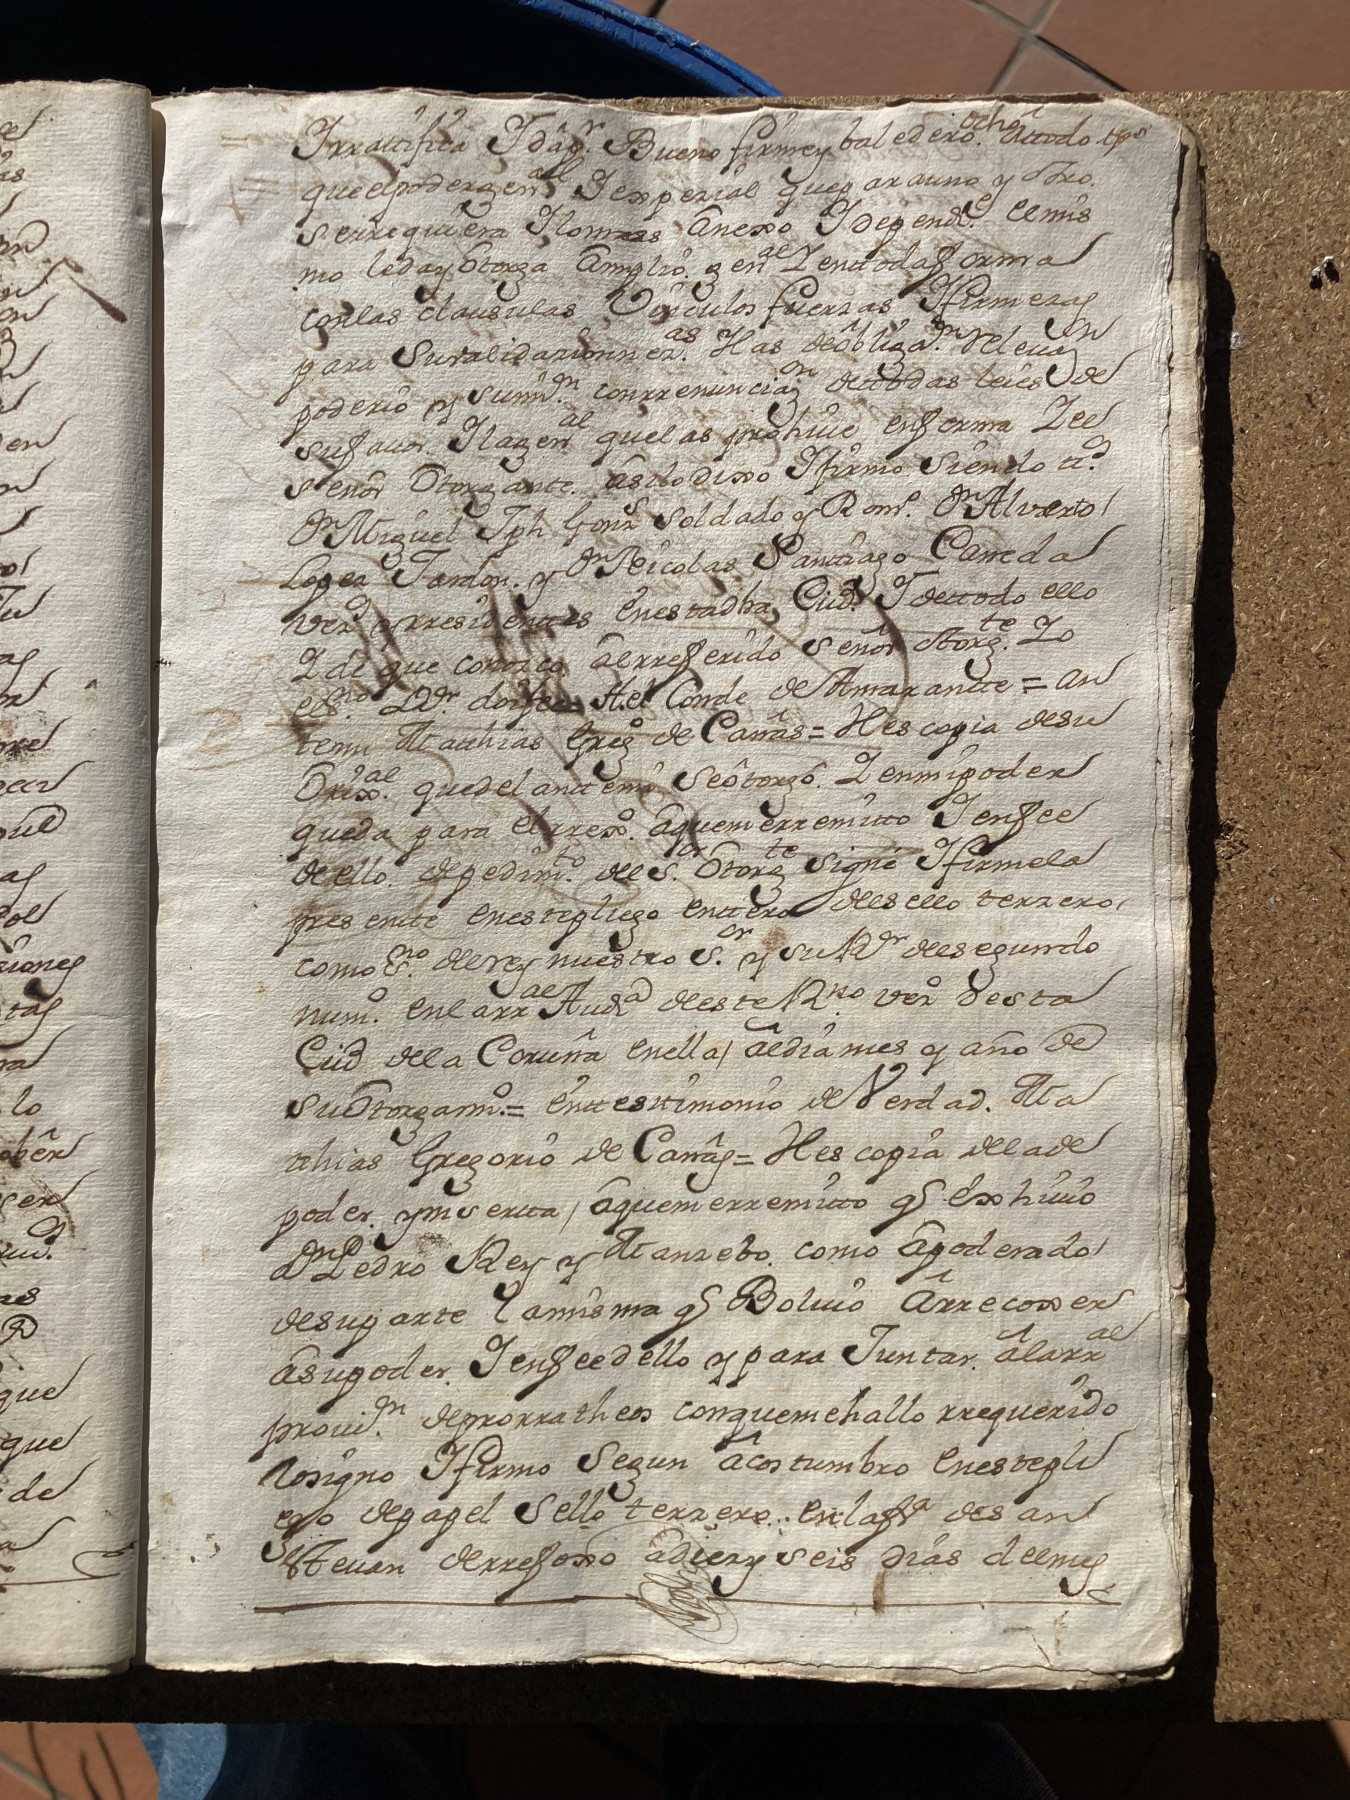 ocho
Irratifica Ida pr. Bueno firmey baledero. atodo tpo
que elpodergenral Iexperial quepara uno y otro.
serrequiera Ilomas anexo Idependte elmis
mo leday Otorga amplio. genal Zenttodaforma
conlas clausulas Vinculos fuerzas Ifirmezas
para suvalidazionnezas. Has de obligazn. Relevazn
poderio y sumn. conrrenunciazn dettodas leies de
sufavor. Ilagenal quelas prohive enforma Zel
señor Otorgante. asilo dixo Ifirmo siendo tt.os
Dn Miguel Jph Gonz soldado y Romo. Dn Alverto
Lopez Tardon. y Dn Nicolas Santiago Caneda
vezos yrresidenttes enestadha Ciud. I dettodo ello
Zde que conozco alrreferido señor Otorgte. Zo
esno. Dor. doifee = A.el Conde de Amarantte = an
temi Matthias Grego de Cañas = Hes copia desu
Orixal. quedelanttemi seotorgó. Zenmipoder
queda para elrrexo. aquemerremitto Ienfee
deello. depedimto. del Sor. Otorgte signé Ifirmela
presentte enestepliego enttero delsello terzero,
como Esno. del rey nuestro Sr. y suRor del segundo
numo. enlarral Auda deste Rno. vezo desta
Ciud de la Coruña enella, aldia mes y año de
suOtorgamto. = enttesttimonio deVerdad. Ma
thias Gregorio de Cañas = Hes copia dela de
poder. ynserta, aquemerremitto qe exhivio
Dn Pedro Rey y Manzebo. como apoderado
desuparte lamisma qe Bolvio arrecoxer
asupoder. Ienfeedello ypara Juntar. alarral
provin. deprorratheo conquemehallo rrequerido
losigno Ifirmo segun acostumbro enestepli
ego depapel sello terzero. enlafa desan
estevan derrefoxo adiezyseis dias delmes